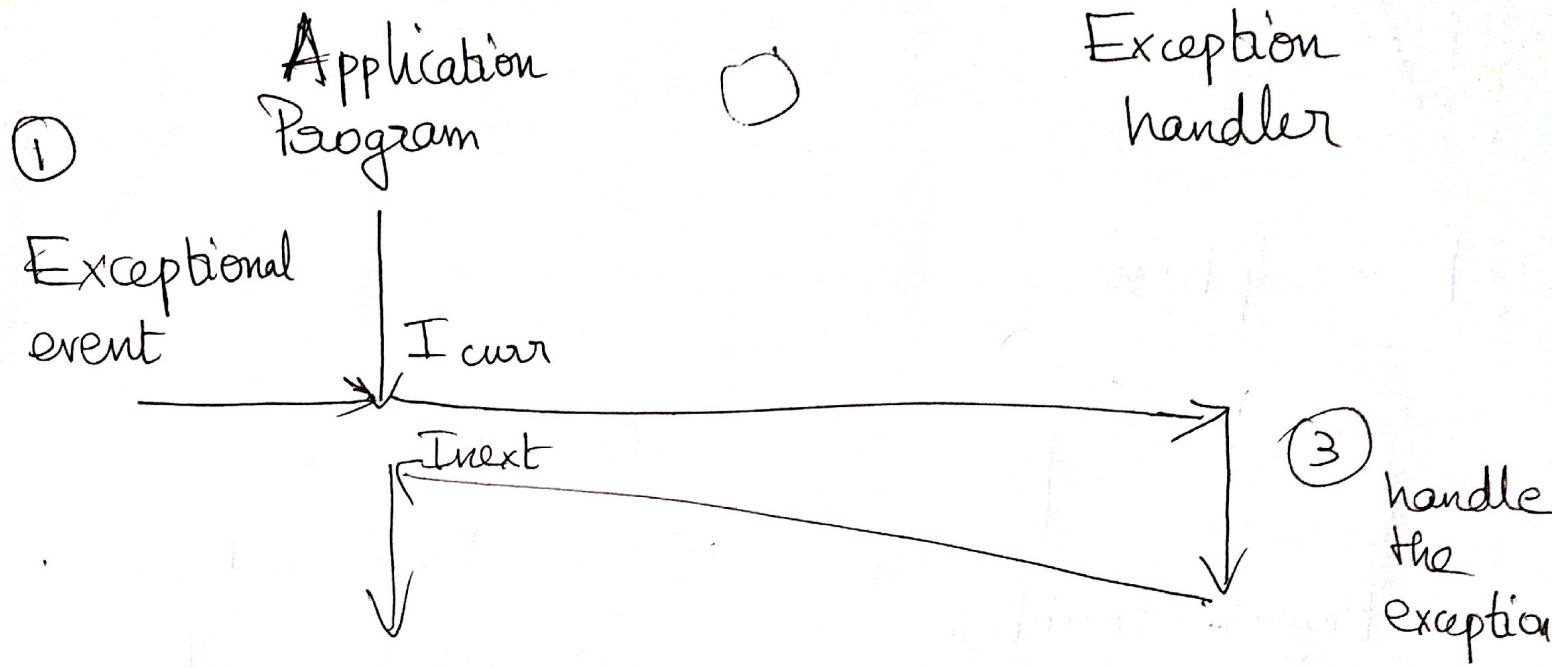 Application
Program
Exception
handler
1
Exceptional
event
I curr
Inext
3
handle
the
exception